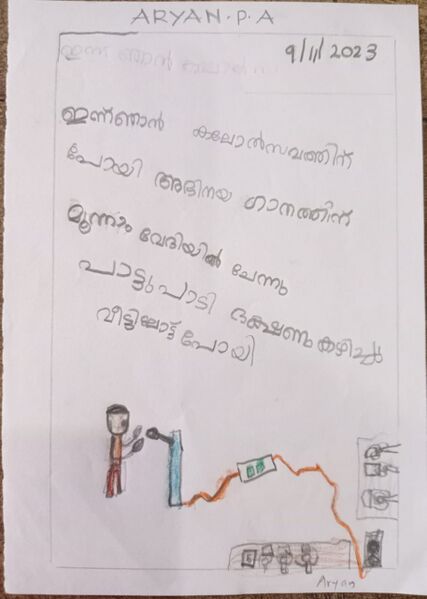 ARYAN.P.A
9/11/2023
ഇന്ന് ഞാൻ കലോൽസവത്തിന്
പോയി അഭിനയ ഗാനത്തിന്
മൂന്നാം വേദിയിൽ ചേന്നു
പാട്ടു പാടി ഭക്ഷണം കഴിച്ചു
വീട്ടിലോട്ട് പോയി
Aryan